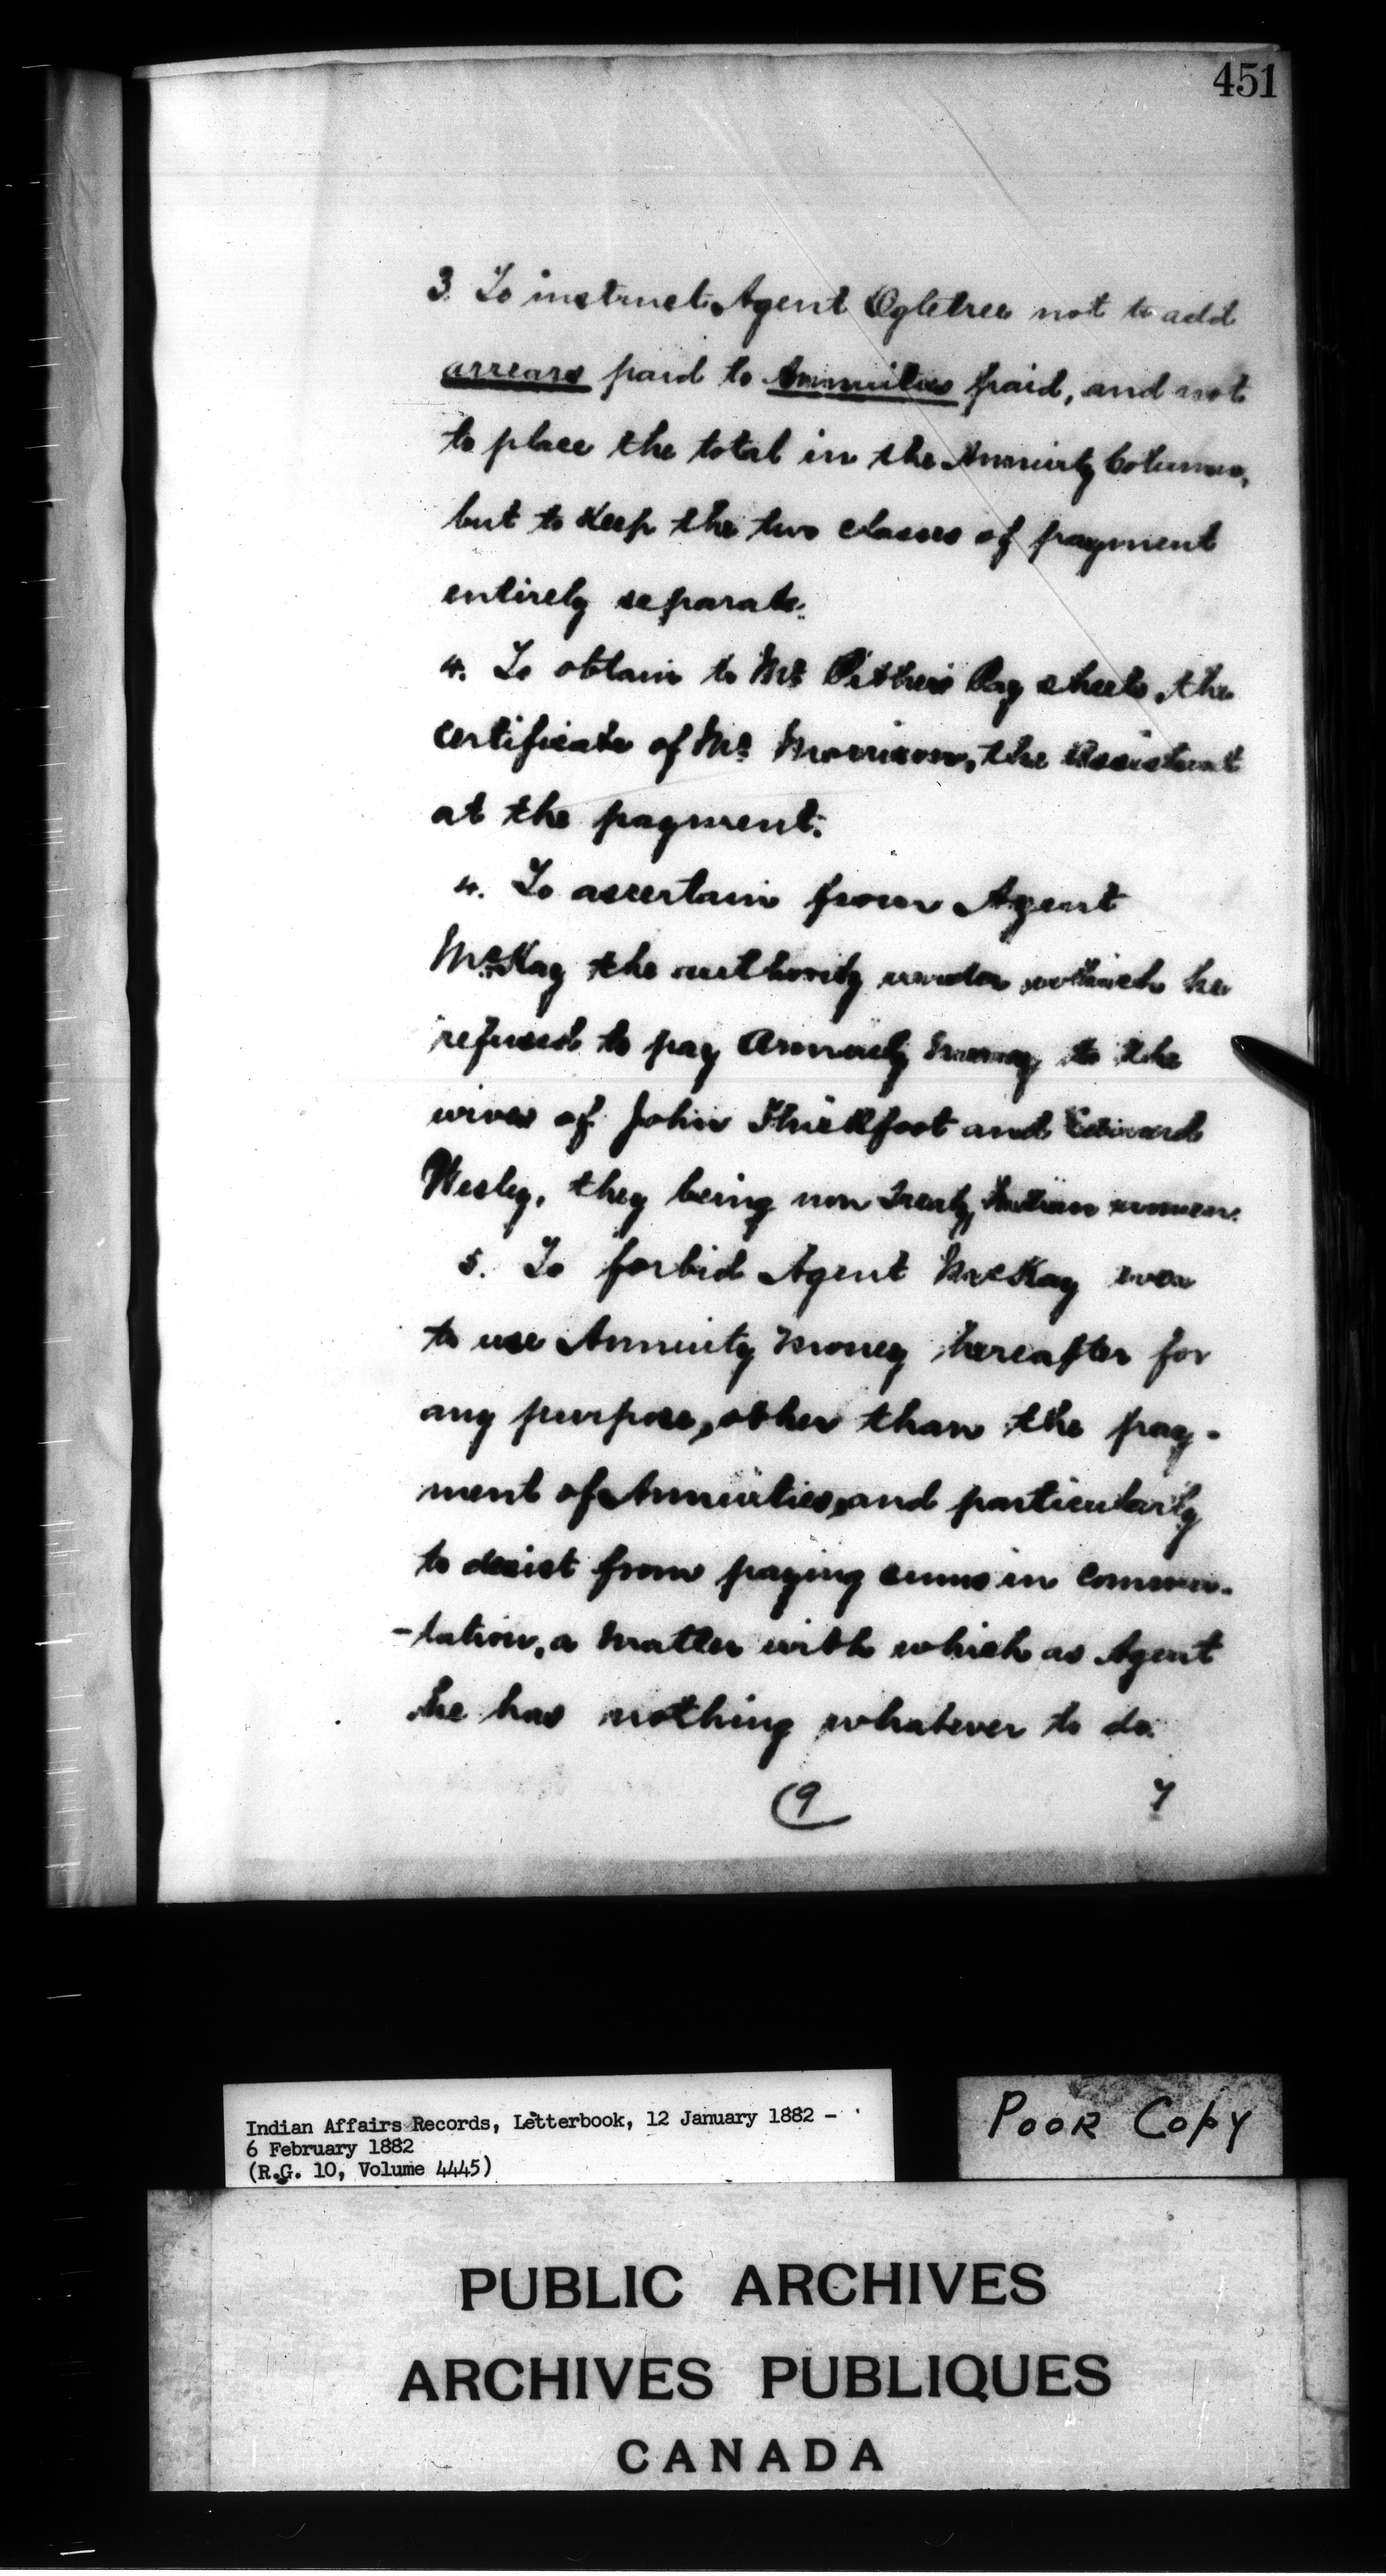 451
3. To instruct Agent Ogletree not to add
arrears paid to Annuities paid, and not
to place the total in the Annuity Column,
but to keep the two classes of payment
entirely separate.
4. To obtain to Mr Pither's Pay sheets, the
certificate of Mr Morrison, the Assistant
at the payment.
4. To ascertain from Agent
McKay the authority under which he
refused to pay Annuity money to the
wives of John Thickfoot and Edward
Wesley, they being non Treaty Indian women.
5. To forbid Agent MacKay ever
to use Annuity money hereafter for
any purpose, other than the pay-
ment of Annuities, and particularly
to desist from paying sums in commu-
-tation, a matter with which as Agent
he has nothing whatever to do.
9
Indian Affairs Records, Letterbook, 12 January 1882 -
6 February 1882
(R.G. 10, Volume 4445)
POOR COPY
PUBLIC ARCHIVES
ARCHIVES PUBLIQUES
CANADA